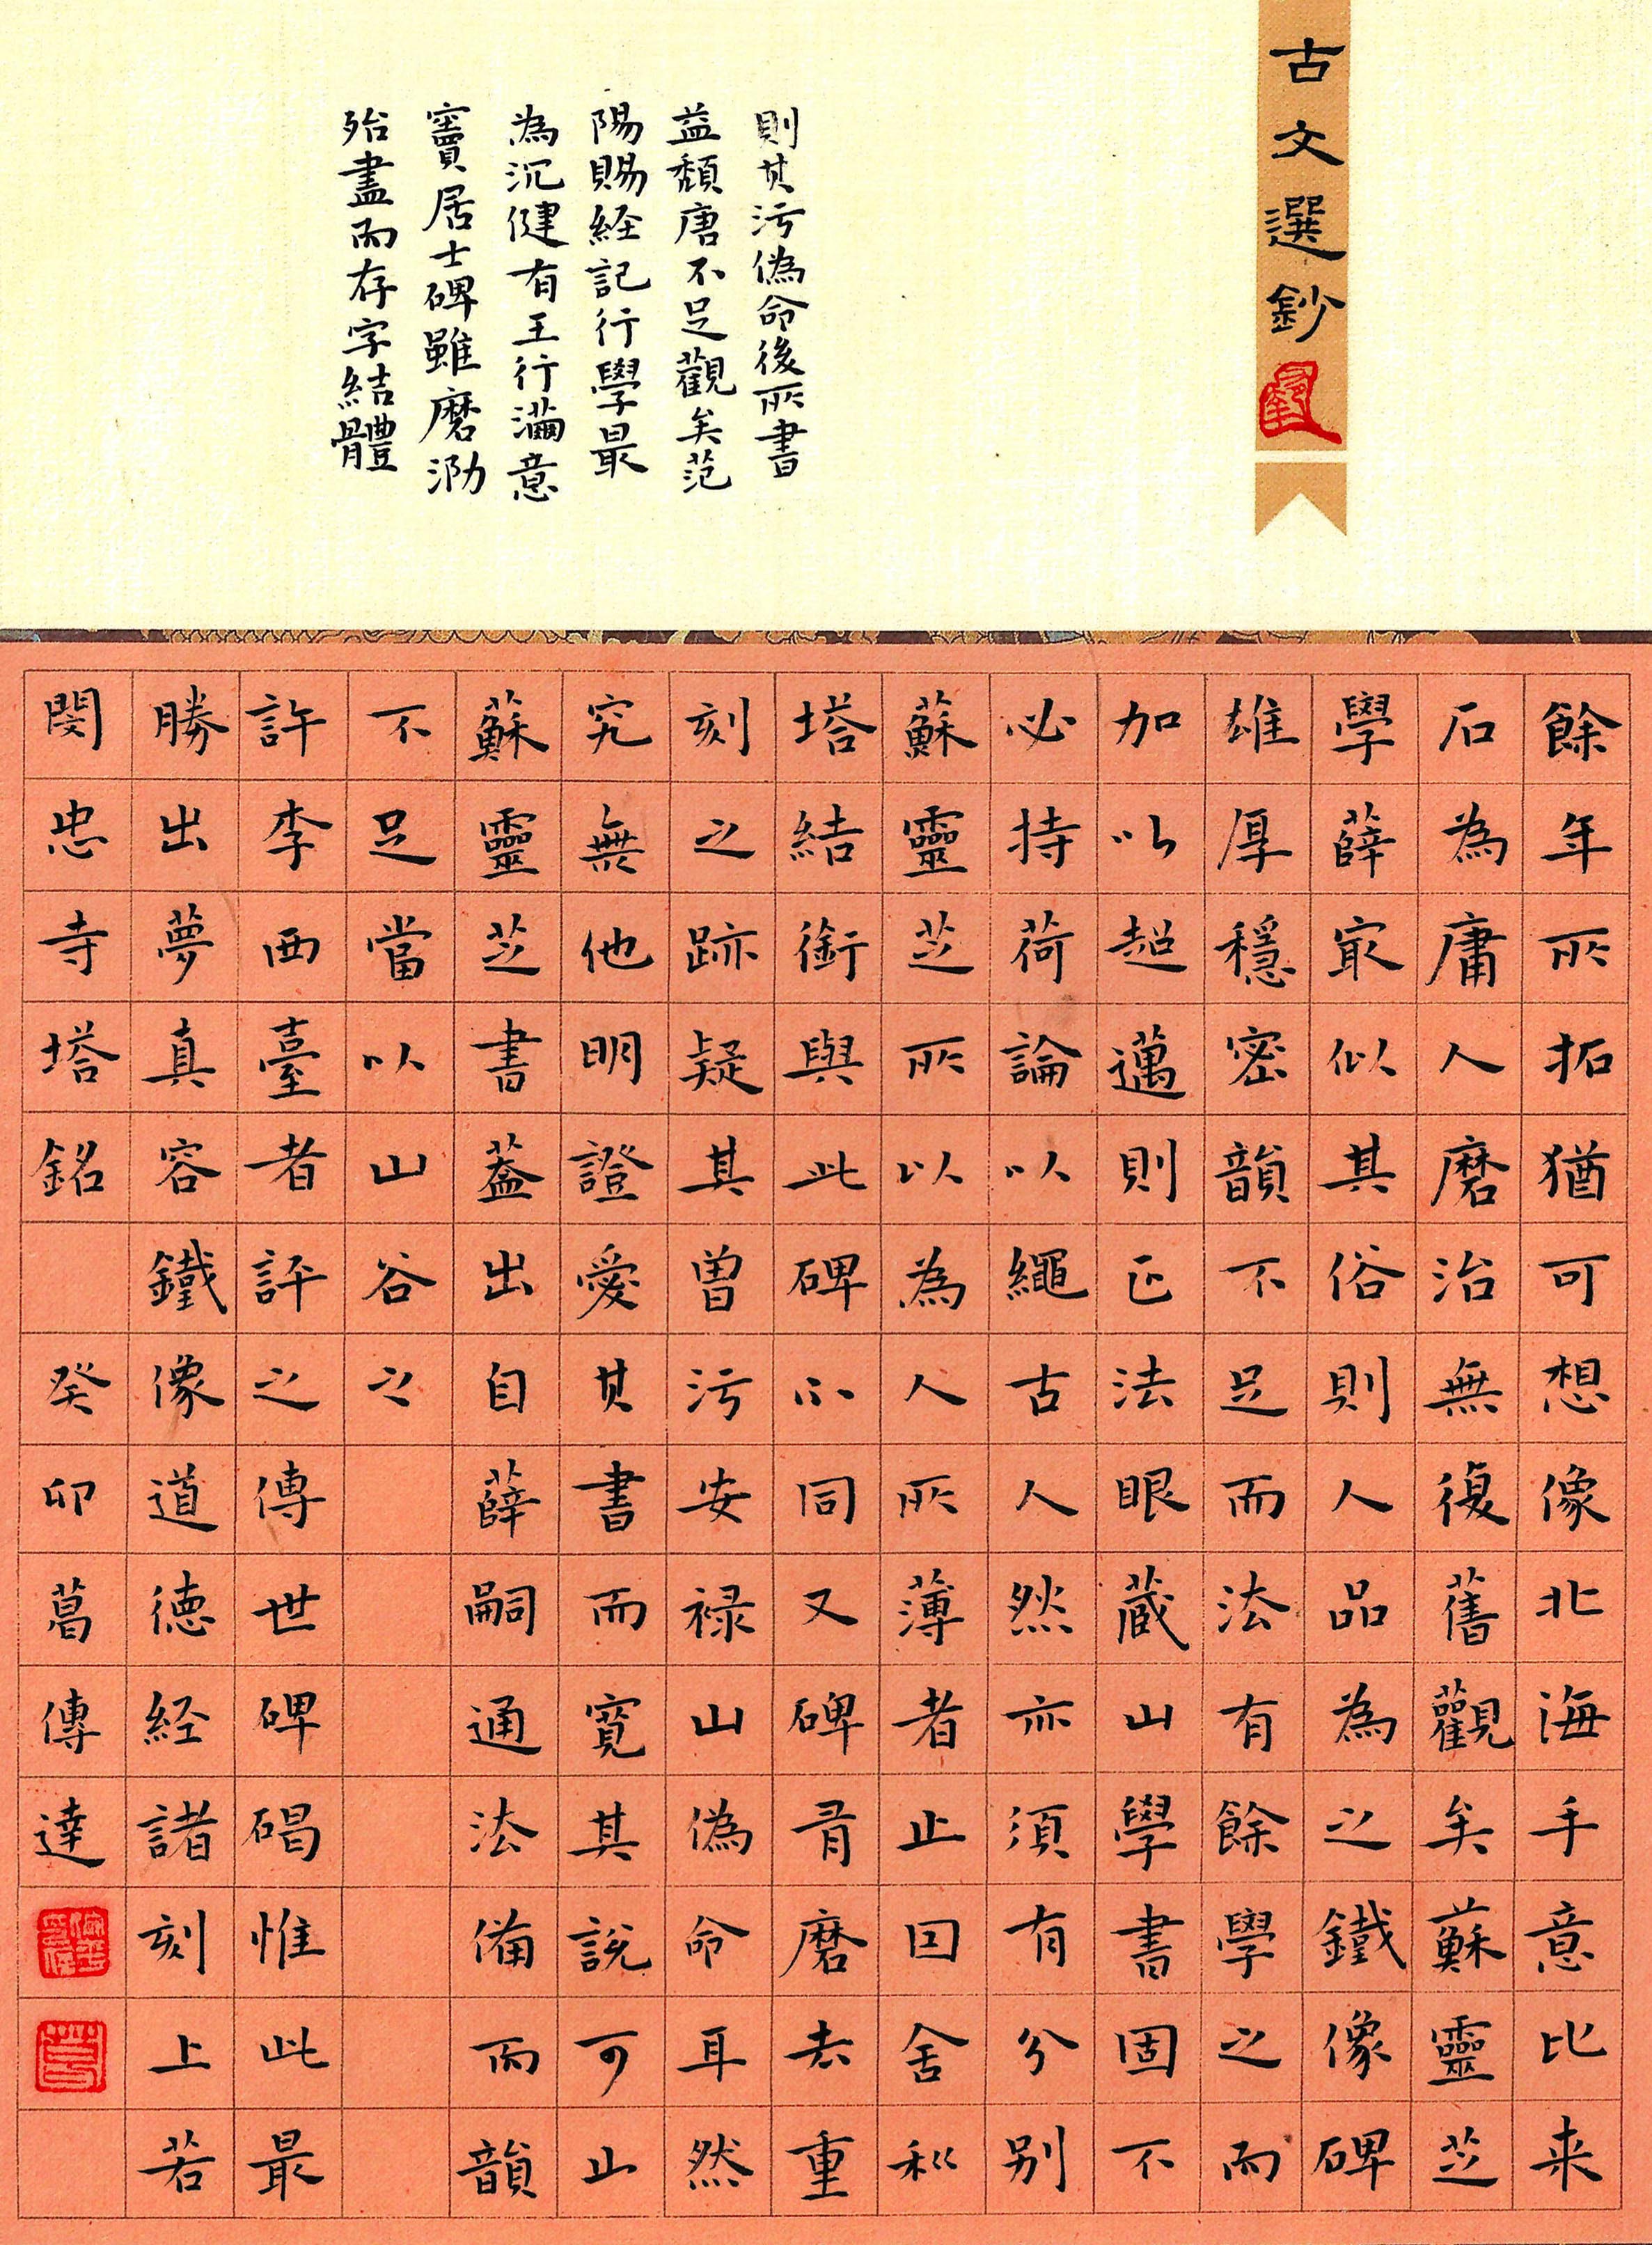 古文選鈔
則其污偽命後所書
益頹唐不足觀矣范
陽賜經記行學最
為沉健有王行滿意
竇居士碑雖磨泐
殆盡而存字結體
餘年所拓猶可想像北海手意比来
石為庸人磨治無復舊觀矣蘇靈芝
學薛㝡似其俗則人品為之鐵像碑
雄厚穩密韻不足而法有餘學之而
加以超邁則正法眼蔵山學書固不
必持苛論以繩古人然亦須有分別
蘇靈芝所以為人所薄者止囙舍私
塔結銜與此碑不同又碑有磨去重
刻之跡疑其曾污安禄山偽命耳然
究無他明證愛其書而寬其說可山
蘇靈芝書蓋出自薛嗣通法備而韻
不足當以山谷之
許李西臺者評之傳世碑碣惟此最
勝出夢真容鐵像道德経諸刻上若
閔忠寺塔銘 癸卯葛傳達